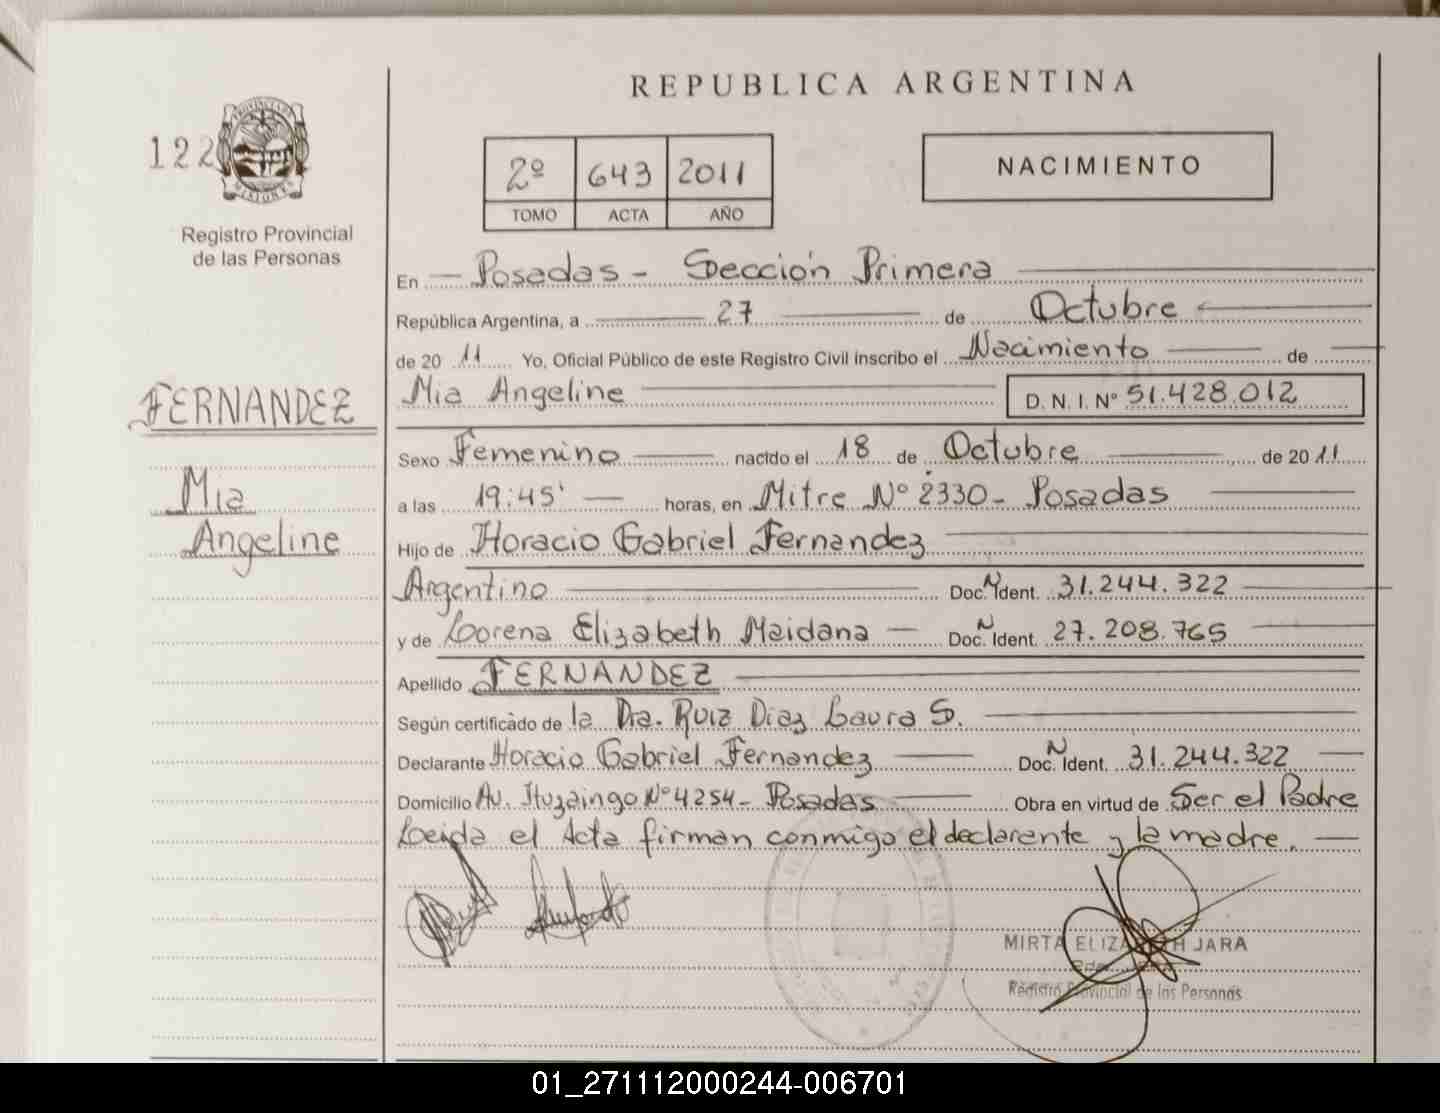 REPUBLICA ARGENTINA
122
PROVINCIA DE MISIONES
Registro Provincial
de las Personas
2º 643 2011
TOMO ACTA AÑO
NACIMIENTO
En Posadas - Sección Primera
República Argentina, a 27 de Octubre
de 2011 Yo, Oficial Público de este Registro Civil inscribo el Nacimiento de
Mia Angeline D. N. I. Nº 51.428.012
FERNANDEZ
Mia
Angeline
Sexo Femenino nacido el 18 de Octubre de 2011
a las 19:45' horas, en Mitre Nº 2330 - Posadas
Hijo de Horacio Gabriel Fernandez
Argentino Doc. N Ident. 31.244.322
y de Lorena Elizabeth Maidana Doc. N Ident. 27.208.765
Apellido FERNANDEZ
Según certificado de la Dra. Ruiz Diaz Laura S.
Declarante Horacio Gabriel Fernandez Doc. N Ident. 31.244.322
Domicilio Av. Ituzaingo Nº 4254 - Posadas Obra en virtud de Ser el Padre
Leida el Acta firman conmigo el declarante y la madre.
MIRTA ELIZABETH JARA
Registro Provincial de las Personas
01_271112000244-006701